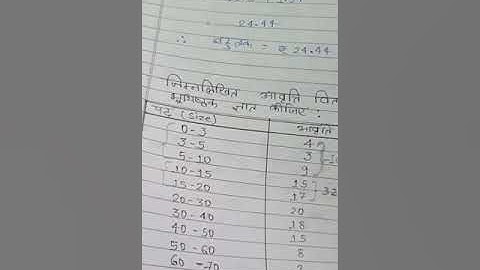 = 24.44
∴ बहुलक = ₹ 24.44
निम्नलिखित आवृति
भूयिष्ठक ज्ञात कीजिए :
पद (Size) आवृति
0-3 4
3-5 3
5-10 9
10-15 15
15-20 17 32
20-30 20
30-40 18
40-50 15
50-60 8
60-70